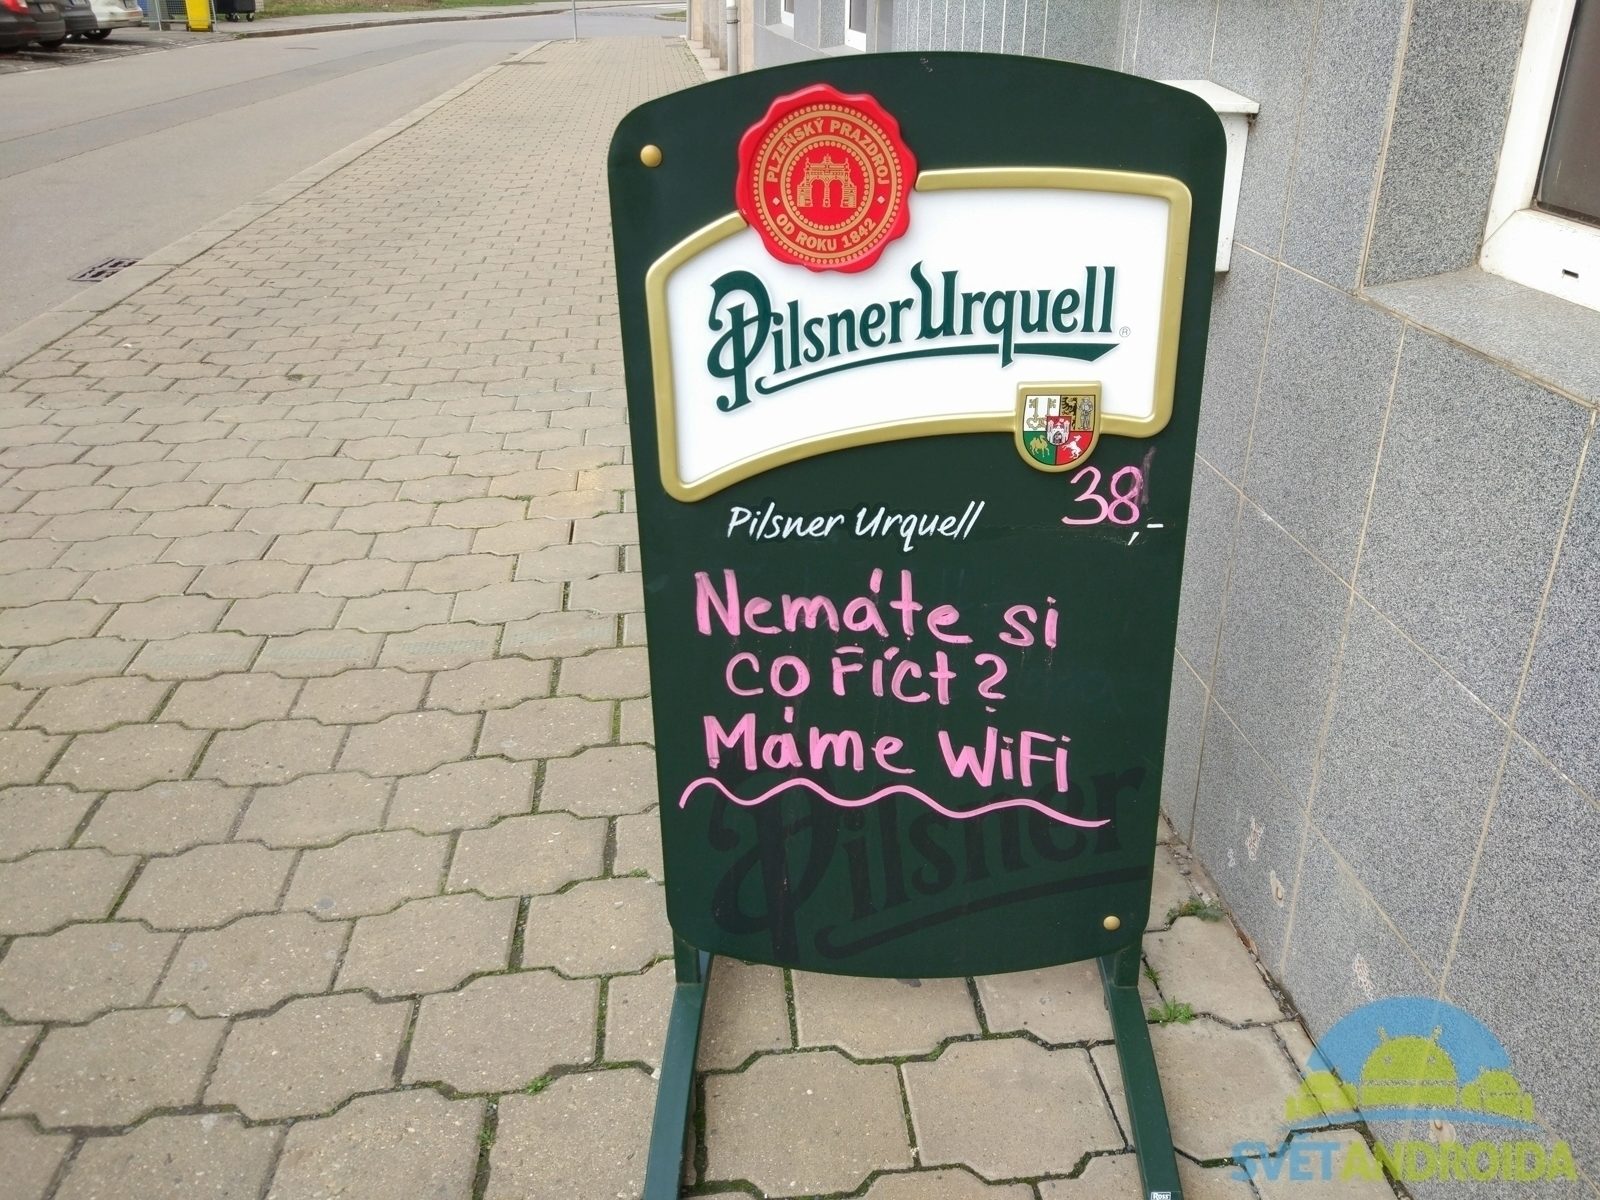 PLZEŇSKÝ PRAZDROJ
OD ROKU 1842
Pilsner Urquell ®
38,-
Pilsner Urquell
Nemáte si
co říct?
Máme WiFi
Pilsner
Ross
SVĚT ANDROIDA